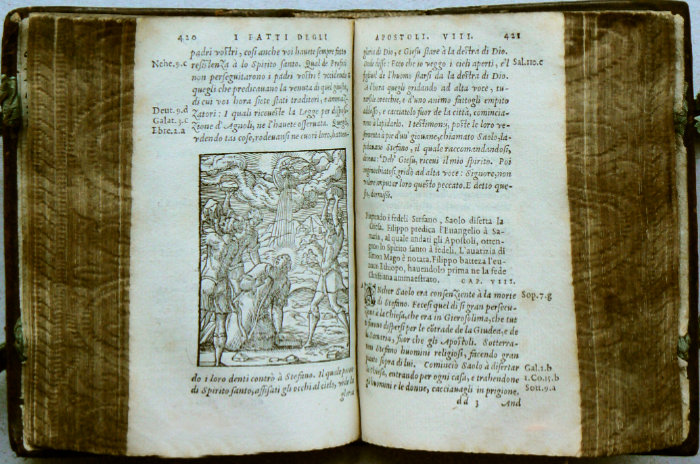 420 I FATTI DEGLI
padri vostri, cosi anche voi havete sempre fatto
resistenza à lo Spirito santo. Qual de Profeti
Nehe.9.c
non perseguitarono i padri vostri? uccidendo
quegli che predicauano la venuta di quel giusto,
di cui voi hora siete stati traditori, & ammaz-
Deut.9.d
zatori: I quali riceueste la Legge per dispo-
Galat.3.c
zione d'Agnoli, ne l'hauete osseruata. Queste
Ebre.2.a
vdendo tas cose, rodeuansi ne cuori loro,
do i loro denti contrò à Stefano. Il quale pieno
di Spirito santo, affisati gli occhi al cielo, vide la
gloria
APOSTOLI. VIII. 421
gloria di Dio, e Giesu stare à la destra di Dio.
Onde disse: Ecco che io veggo i cieli aperti, e'l
Sal.110.c
figliuol de l'huomo starsi da la destra di Dio.
A l'hora quegli gridando ad alta voce, tu-
rolsi orecchie, e d'uno animo fattogli empito
adosso, e cacciatolo fuor de la città, comincia-
rono à lapidarlo. I testimony, poste le loro
veste a piè d'un giouane, chiamato Saolo, la-
pidauano Stefano, il quale raccomandandosi,
diceua: Deh Giesu, riceui il mio spirito. Poi
inginocchiatosi grido ad alta voce: Signore, non
volere imputar loro questo peccato. E detto que-
sto, dormissi.
i fedeli Stefano, Saolo disetta la
Chiesa. Filippo predica l'Euangelio à Sa-
maria, al quale andati gli Apostoli, otten-
gono lo Spirito santo à fedeli. L'auaritia di
Simon Mago è notata. Filippo batteza l'eu-
nuco Ethiopo, hauendolo prima ne la fede
Christiana ammaestrato. CAP. VIII.
ANcher Saolo era consenziente à la morte
Sop.7.g
di Stefano. Fecesi quel dì si gran persecu-
zione à la Chiesa, che era in Gierosolima, che tut
ti furono dispersi per le cōtrade de la Giudea, e de
la Samaria, fuor che gli Apostoli. Sotterra-
rono Stefano huomini religiosi, facendo gran
pianto sopra di lui. Comincio Saolo à disertar
Gal.1.b
la Chiesa, entrando per ogni casa, e trahendone
1.Co.15.b
gli huomini e le donne, cacciauagli in prigione.
Sott.9.a
dd 3 And